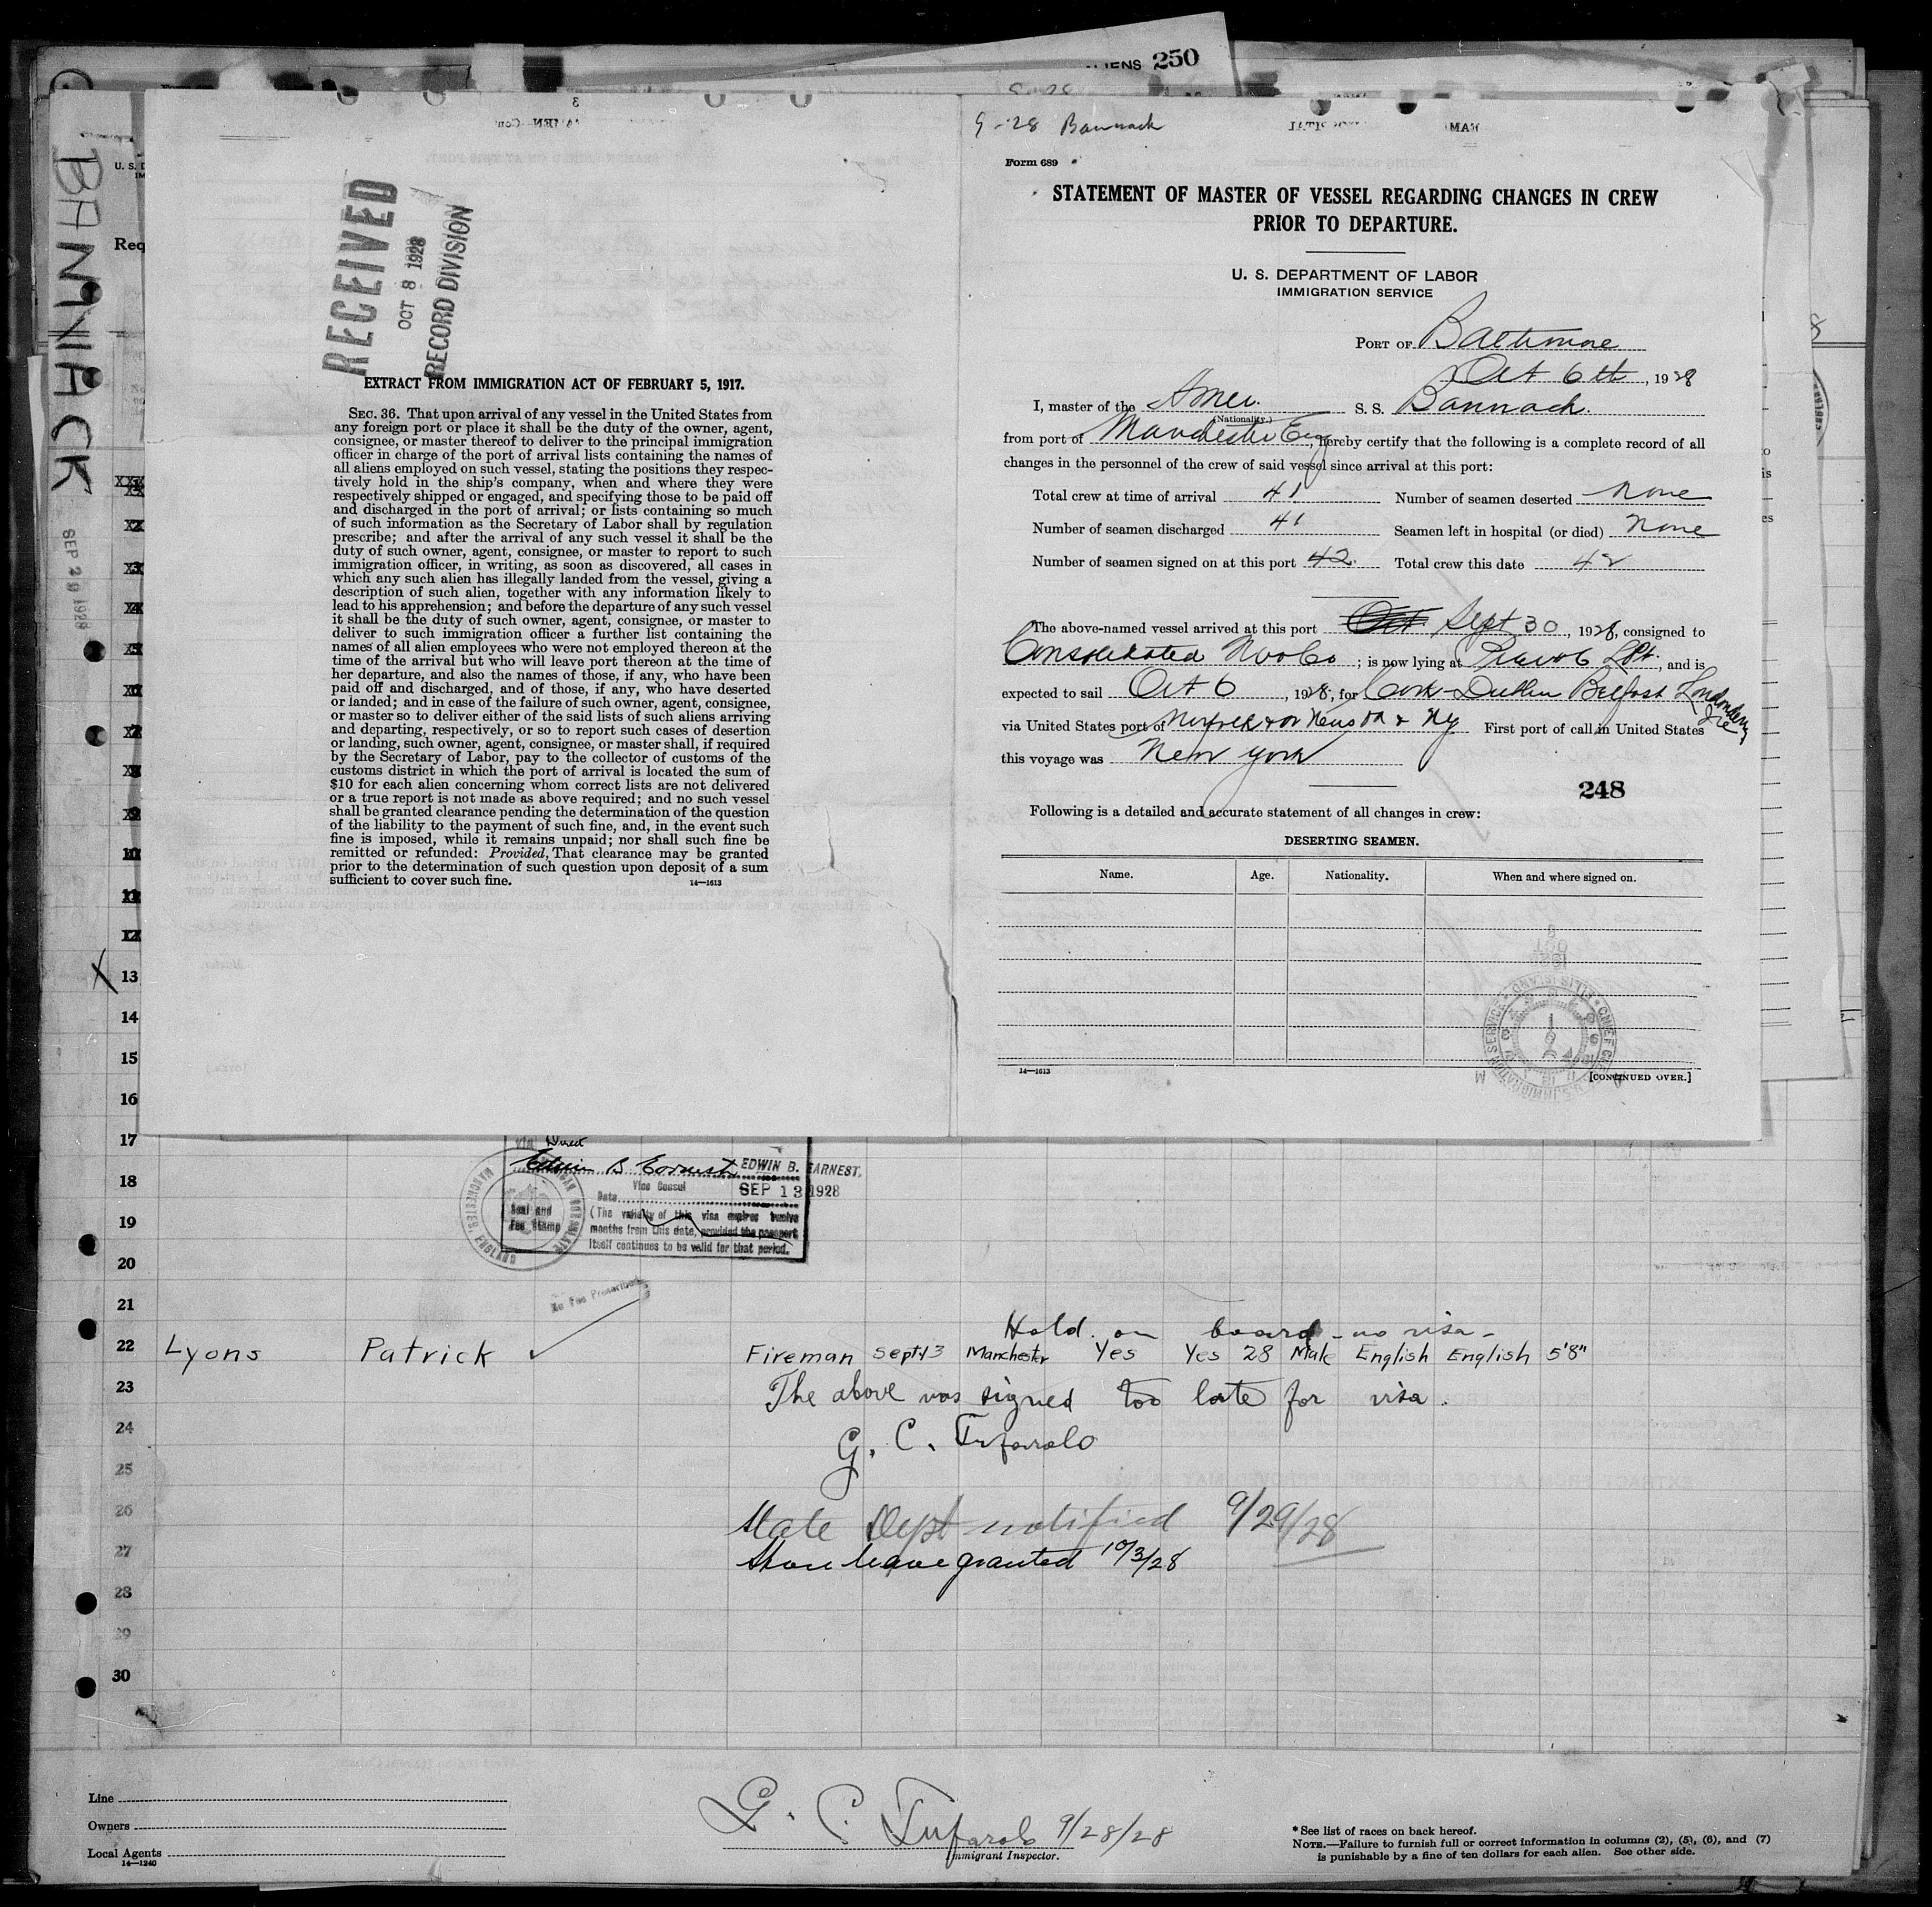 IENS 250
BANNACK
SEP 29 1928
U. S. D
IM
Req
RECEIVED
OCT 8 1928
RECORD DIVISION
EXTRACT FROM IMMIGRATION ACT OF FEBRUARY 5, 1917.
SEC. 36. That upon arrival of any vessel in the United States from
any foreign port or place it shall be the duty of the owner, agent,
consignee, or master thereof to deliver to the principal immigration
officer in charge of the port of arrival lists containing the names of
all aliens employed on such vessel, stating the positions they respec-
tively hold in the ship's company, when and where they were
respectively shipped or engaged, and specifying those to be paid off
and discharged in the port of arrival; or lists containing so much
of such information as the Secretary of Labor shall by regulation
prescribe; and after the arrival of any such vessel it shall be the
duty of such owner, agent, consignee, or master to report to such
immigration officer, in writing, as soon as discovered, all cases in
which any such alien has illegally landed from the vessel, giving a
description of such alien, together with any information likely to
lead to his apprehension; and before the departure of any such vessel
it shall be the duty of such owner, agent, consignee, or master to
deliver to such immigration officer a further list containing the
names of all alien employees who were not employed thereon at the
time of the arrival but who will leave port thereon at the time of
her departure, and also the names of those, if any, who have been
paid off and discharged, and of those, if any, who have deserted
or landed; and in case of the failure of such owner, agent, consignee,
or master so to deliver either of the said lists of such aliens arriving
and departing, respectively, or so to report such cases of desertion
or landing, such owner, agent, consignee, or master shall, if required
by the Secretary of Labor, pay to the collector of customs of the
customs district in which the port of arrival is located the sum of
$10 for each alien concerning whom correct lists are not delivered
or a true report is not made as above required; and no such vessel
shall be granted clearance pending the determination of the question
of the liability to the payment of such fine, and, in the event such
fine is imposed, while it remains unpaid; nor shall such fine be
remitted or refunded: Provided, That clearance may be granted
prior to the determination of such question upon deposit of a sum
sufficient to cover such fine. 14—1613
9-28 Bannack
Form 689
STATEMENT OF MASTER OF VESSEL REGARDING CHANGES IN CREW
PRIOR TO DEPARTURE.
U. S. DEPARTMENT OF LABOR
IMMIGRATION SERVICE
PORT OF Baltimore
Oct 6th, 1928
I, master of the Amer. S. S. Bannack.
(Nationality.)
from port of Manchester Eng, hereby certify that the following is a complete record of all
changes in the personnel of the crew of said vessel since arrival at this port:
Total crew at time of arrival 41 Number of seamen deserted none
Number of seamen discharged 41 Seamen left in hospital (or died) none
Number of seamen signed on at this port 42 Total crew this date 42
The above-named vessel arrived at this port Oct Sept 30, 1928, consigned to
Consolidated ; is now lying at , and is
expected to sail Oct 6, 1928, for Cork-Dublin Belfast Londonderry
via United States port of & NY First port of call in United States
this voyage was New York
248
Following is a detailed and accurate statement of all changes in crew:
DESERTING SEAMEN.
Name. Age. Nationality. When and where signed on.
14—1613
[CONTINUED OVER.]
10
11
12
X 13
14
15
16
17
18
19
20
21
22
23
24
25
26
27
28
29
30
via Direct
Edwin B Earnest EDWIN B. EARNEST.
Vice Consul
Date SEP 13 1928
Seal and
Fee Stamp
(The validity of this visa expires twelve
months from this date, provided the passport
itself continues to be valid for that period.
MANCHESTER, ENGLAND
No Fee Prescribed
Hold on board - no visa -
Lyons Patrick Fireman Sept 13 Manchester Yes Yes 28 Male English English 5'8"
The above was signed too late for visa.
G. C. Tufarolo
State Dept notified 9/29/28
Shore leave granted 10/3/28
Line
Owners
Local Agents
14—1240
G. C. Tufarolo 9/28/28
Immigrant Inspector.
* See list of races on back hereof.
NOTE.—Failure to furnish full or correct information in columns (2), (5), (6), and (7)
is punishable by a fine of ten dollars for each alien. See other side.